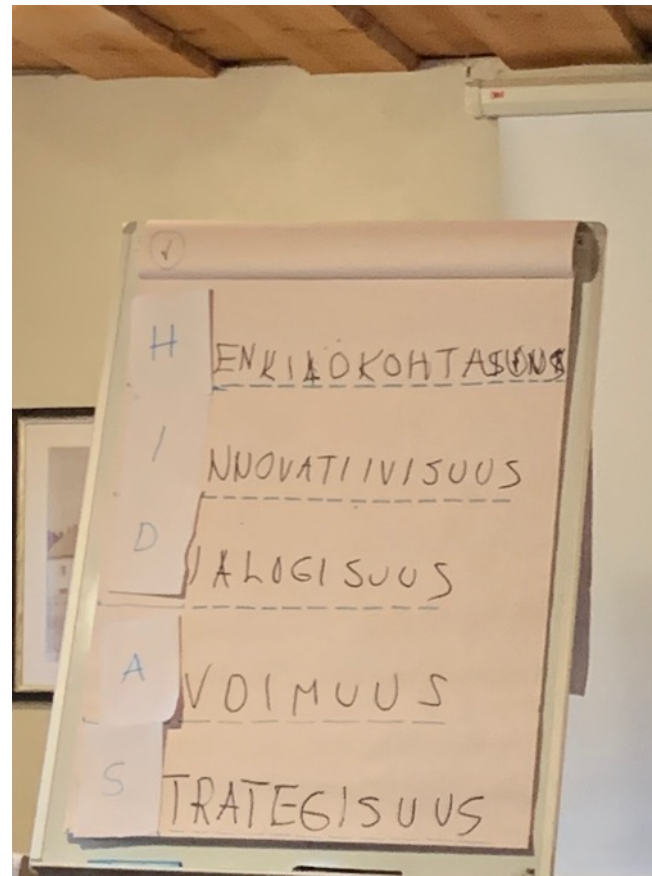 HENKILÖKOHTAISUUS
INNOVATIIVISUUS
DIALOGISUUS
AVOIMUUS
STRATEGISUUS